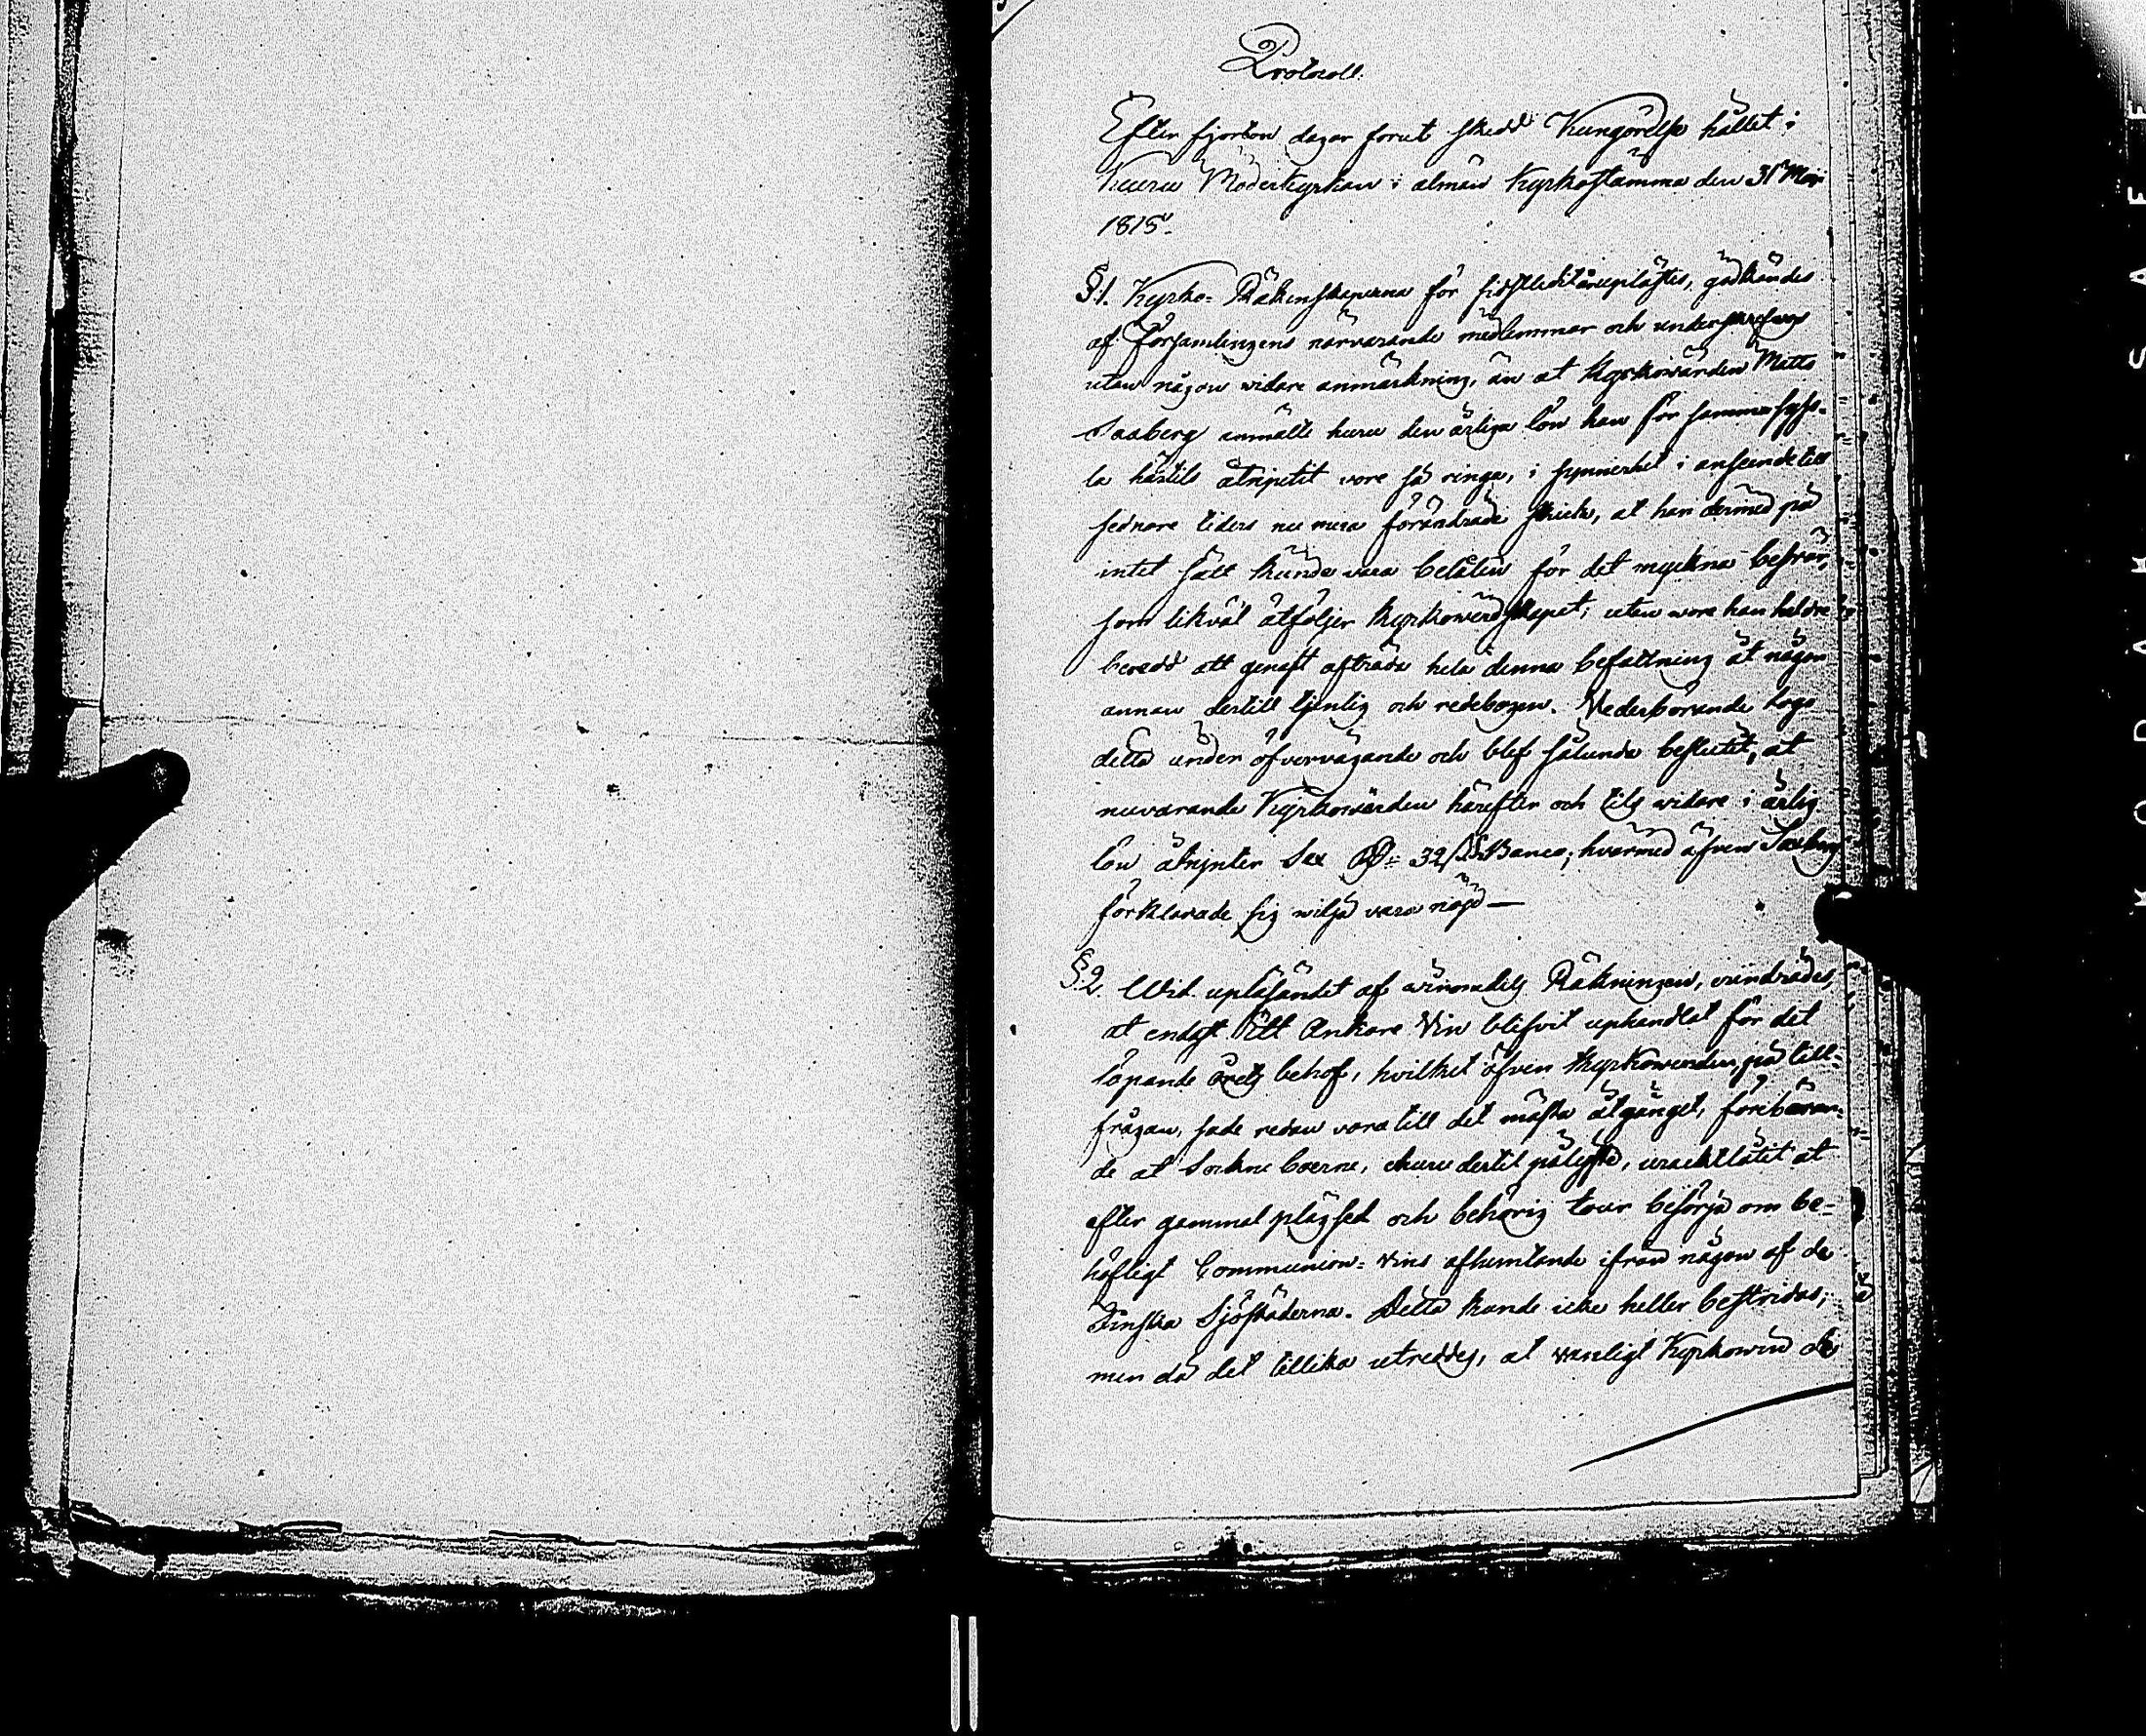 Protocoll
Efter fjorton dagar förut skedd Kungörelse hållet i
Keuru Moderkyrkan i almän Kyrkostämma den 31 Maji
1815.
§.1. Kyrko-Räkenskaperna för sidstledit år uplästes, godkändes
af Församlingens närvarande medlemmar och underskrefvos
utan någon widare anmärkning, än at Kyrkowärden Matts
Saxberg anmälte huru den årliga lön han för samma syss-
la härtils åtnjutit vore så ringa, i synnerhet i anseende till
sednare tiders nu mera förändrade skick, at han dermed på
intet sätt kunde vara belåten för det myckna besvär,
som likväl åtföljer Kyrkowärdskapet; utan wore han heldre
beredd att genast afträda hela denna befattning åt någon
annan dertill tjenlig och redebogen. Vederbörande togo
detta under öfvervägande och blef sålunda beslutit, at
nuvarande Kyrkowärden härefter och tils widare i årlig
lön åtnjuter Sex RD. 32 ß Banco; hvarmed äfven Saxberg
förklarade sig wilja vara nöjd —
§.2. Wid upläsandet af Räkningen, undrades,
at endast Ett Ankare Vin blifvit uphandlat för det
löpande årets behof, hvilket äfven Kyrkowärden, på till-
frågan, sade redan vara till det mästa åtgånget, förebäran-
de at Sockne boerne, ehuru dertil pålyste, uracktlåtit at
efter gammal plägsed och behörig tour besörja om be-
höfligt Communion-vins afhemtande ifrån någon af de
Finska Sjöstäderna. Detta kunde icke heller bestridas;
men då det tillika utreddes, at vanligt Kyrkowin